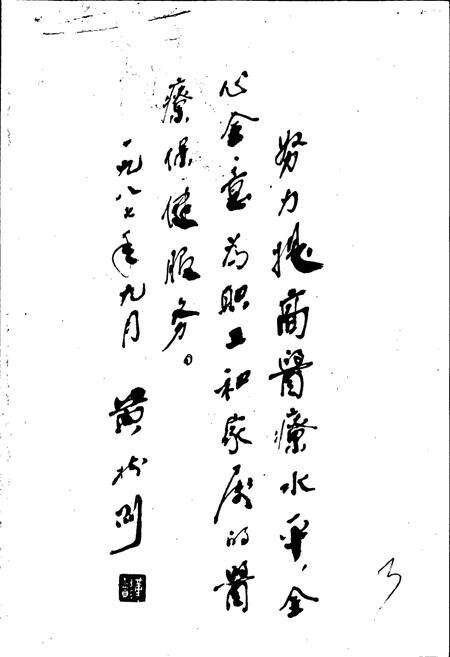 努力提高醫療水平，全
心全意为职工和家属的醫
療保健服务。
一九八七年九月
黄树则
3